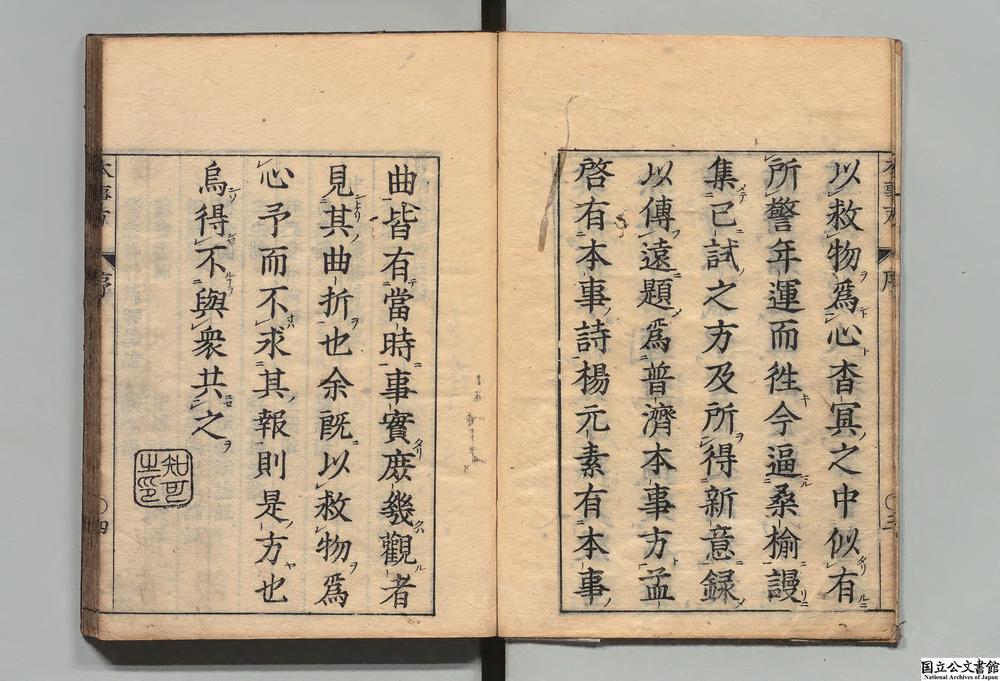 以救物爲心杳冥之中似有
所警年運而徃今逼桑榆謾
集已試之方及所得新意録
以傳遠題爲普濟本事方孟
啓有本事詩楊元素有本事
曲皆有當時事實庶幾觀者
見其曲折也余既以救物爲
心予而不求其報則是方也
烏得不與衆共之
知可
之印
本事方
序
三
本事方
序
四
国立公文書館
National Archives of Japan